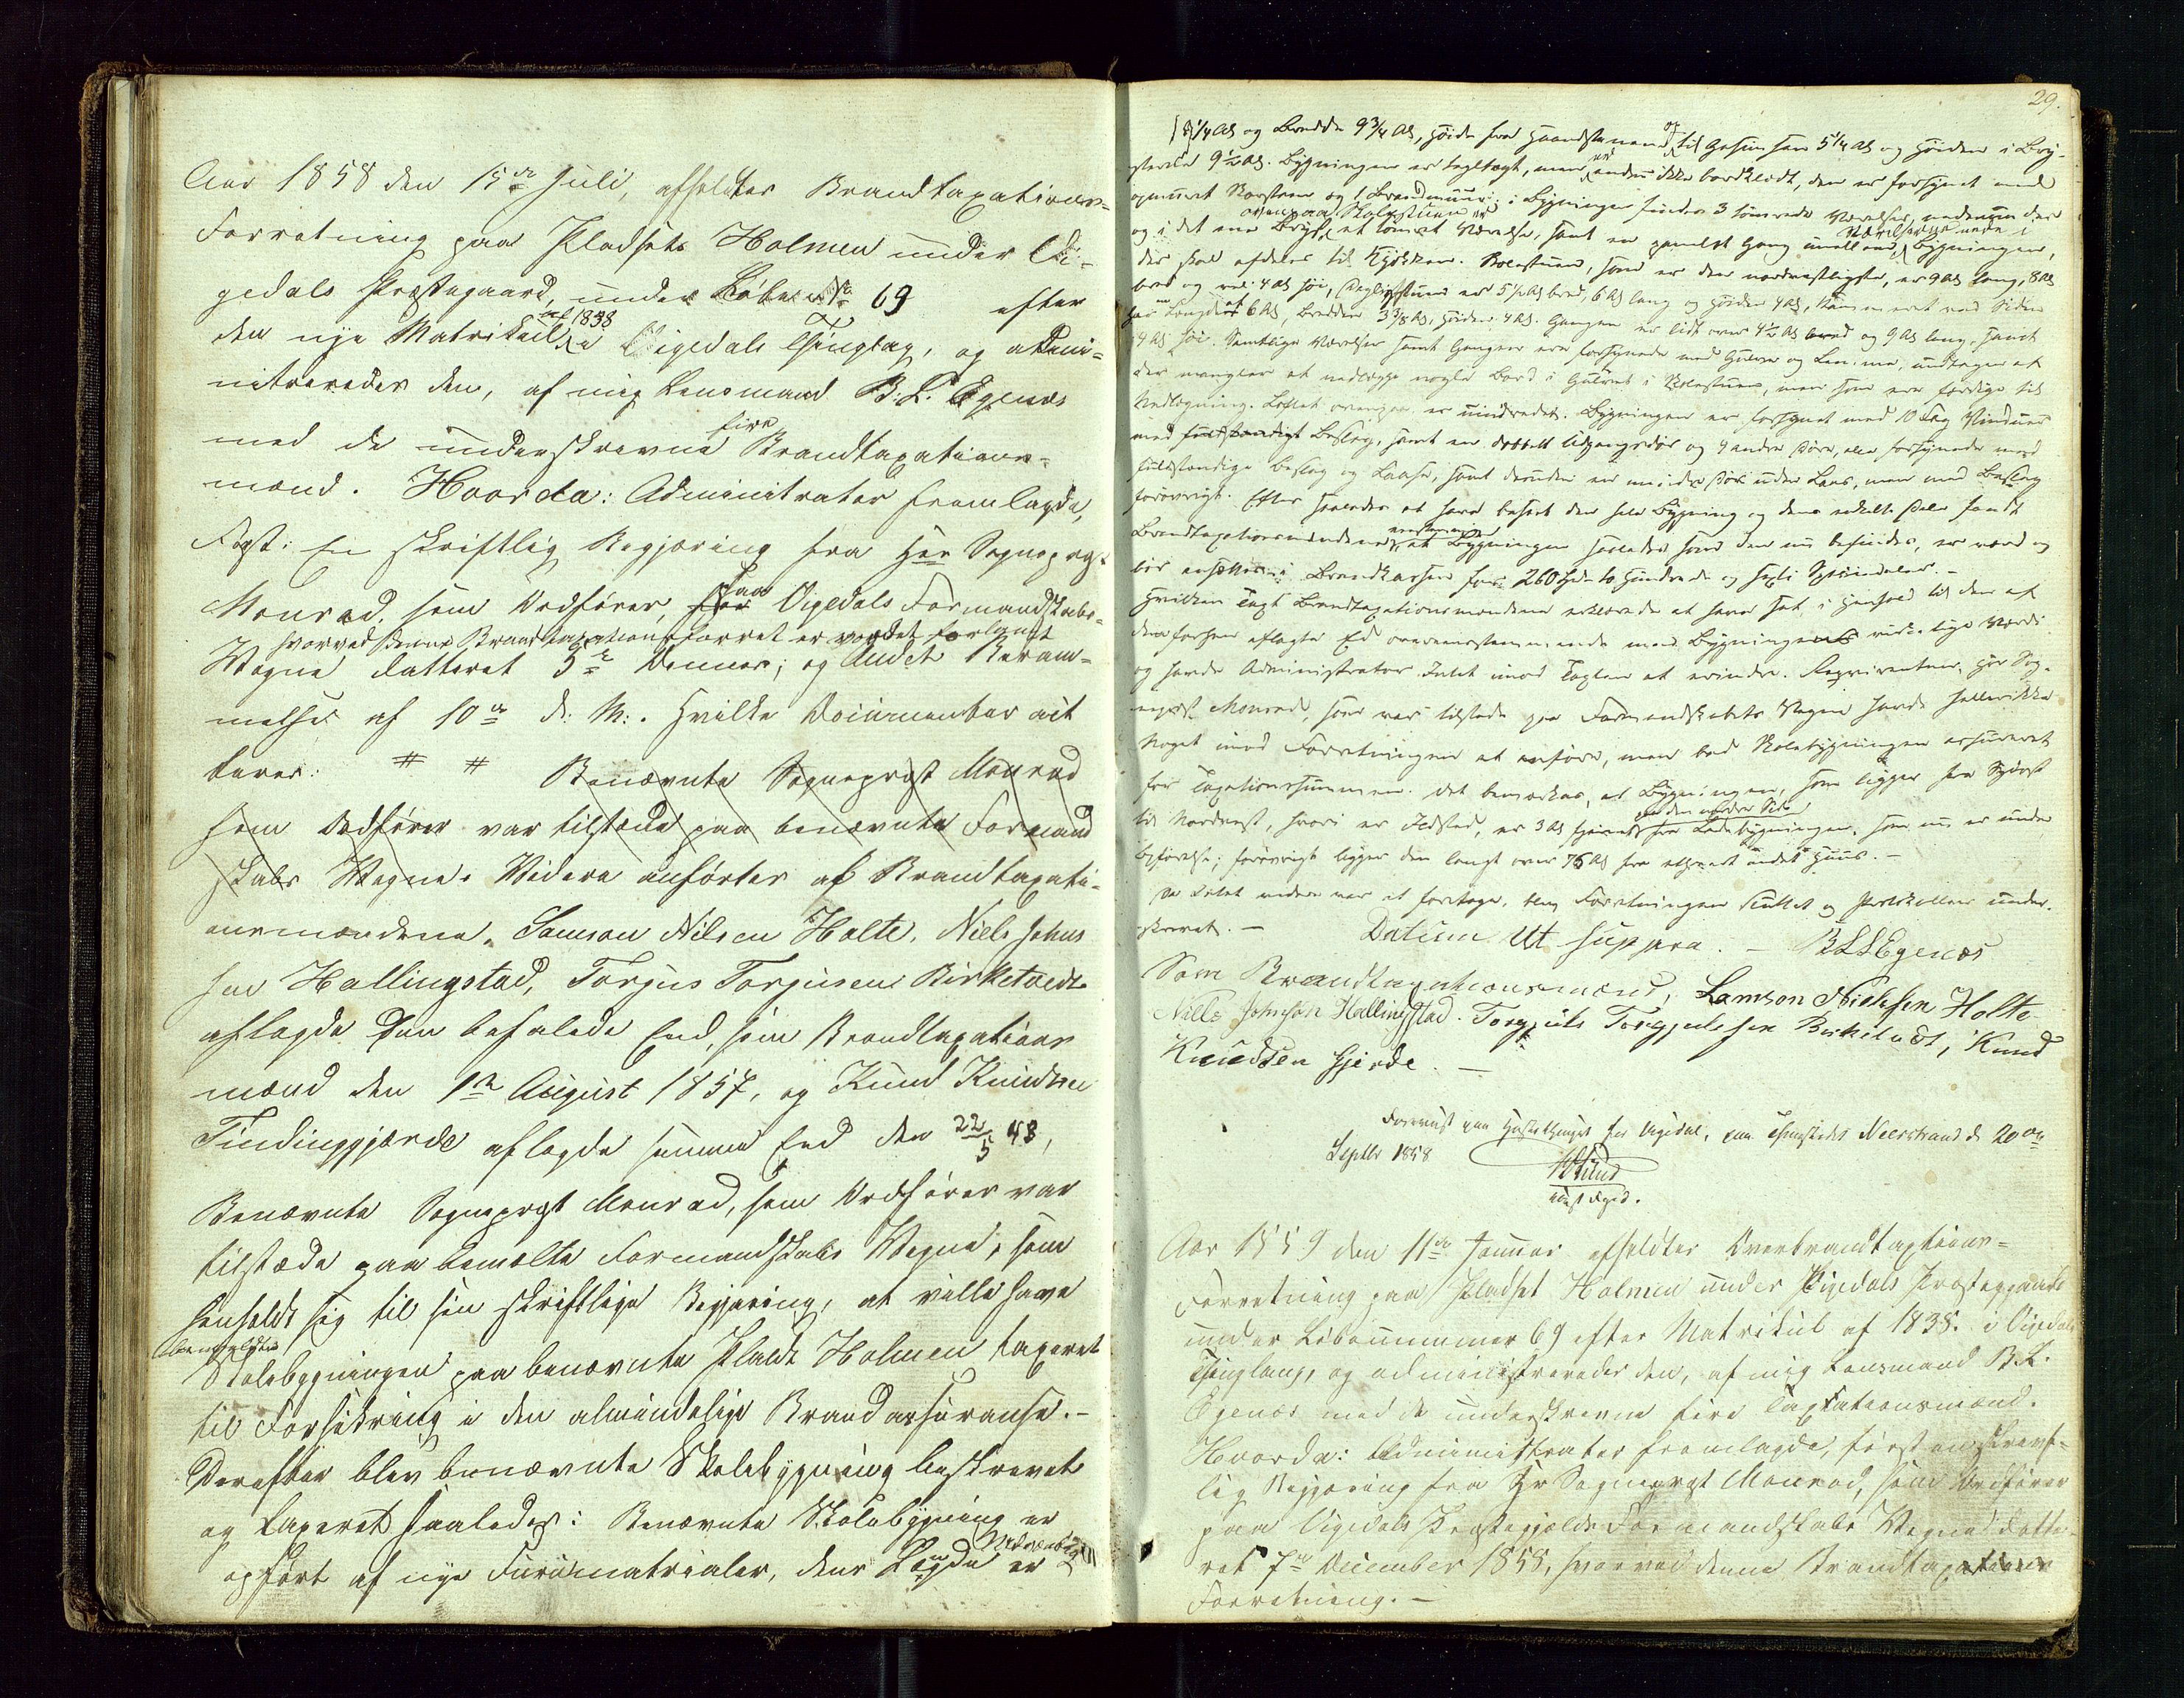 Aar 1858 den 15de Juli, afholdtes Brandtaxations-
Forretning paa Pladsen Holmen under Vi-
gedals Præstegaard, under Løbe No 69 efter
den nye Matrikul af 1838 i Vigedals Thinglag, og admi-
nitreredes den, af mig Lensmand B. L. Egenæs
med de underskrevne fire Brandtaxations-
mænd. Hvorda: Adminitrator fremlagde,
Først: En skriftlig Begjæring fra Herr Sogneprest
Monrad, som Ordfører, for paa Vigedals Formandskabs-
hvorved denne Brandtaxationsforret er vordet forlangt
Vegne datteret 5te dennes; og Andet Beram-
melse af 10de d: M:. Hvilke Documenter  ait
terer: # # Benævnte Sogneprest Monrad
som Ordfører var tilstæde paa benævnte Formand
skabs Vegne. Videre anførtes af Brandtaxati-
onsmændene, Samson Nilsen Holte, Niels Johns
sen Hallingstad, Torjus Torjusen Birketvedt
aflagde den befalede Eed, som Brandtaxations
mænd den 1te August 1857, og Knud Knudsen
Tindinggjærde aflagde samme Eed den 22/5 43,
Benævnte Sogneprest Monrad, som Ordfører var
tilstæde paa bemælte Formandskabs Vegne, som
henholdt sig til sin skriftlige Begjæring, at ville have
Skolebygningen paa benævnte Plads Holmen taxeret
til Forsikring i den almindelige Brandassuranse.-
Derefter blev benævnte Skolebygning beskrevet
og taxeret saaledes: Benævnte Skolebygning er
opført af nye Furumatrialer, dens Længde er
29.
1/4 Al og Bredde 9 3/4 Al, Høide fra Grundstenene op til Gesimsen 5 1/4 Al og Høiden i Røi-
steret 9 1/2 Al. Bygningen er tegltægt, men er endnu ikke bordklædt, den er forsynet med
opmuret Skorsteen og 1 Brandmuur; i Bygningen findes 3 tømrede Værelser nedenunder
ovenpaa Skolestuen
og i det ene Røist et tømret Værelse, samt en panelet Gang imellem Værelserne nede i Bygningen,
der skal afdeles til Kjøkken. Skolestuen, som er den nordvestligste, er 9 Al lang, 8 Al
bred og ved 4 Al høi, Dagligstuen er 5 1/2 Al bred, 6 Al lang og Høiden 4 Al, Kammeret ved Siden
har en Længde af 6 Al, Bredden 3 3/8 Al, Høiden 4 Al. Gangen er lidt over 4 1/2 Al bred og 9 Al lang, samt
4 Al høi. Samtlige Værelser samt Gangen ere forsynede med Gulver og Lemme, undtagen at
der mangler at nedlægge nogle Bord i Gulvet i Skolestuen, men som ere færdige til
Nedlægning. Loftet ovenpaa er uindredet. Bygningen er forsynet med 10 Fag Vinduer
med fuldstændigt Beslag, samt en dobbelt Udgangsdør og 4 andre Døre, alle forsynede med
fuldstændige Beslag og Laase, samt desuden en mindre Dør uden Laas, men med Beslag
forøvrigt. Efter saaledes at have beseet den hele Bygning og dens enkelte Dele fandt
Brandtaxationsmændene eenstemmigen at Bygningen saaledes som den nu befindes, er værd og
bør ansættes i Brandkassen for 260 Spd to Hundrede og sexti Speciedaler. -
Hvilken Taxt Brandtaxationsmændene erklærede at have sat, i Henhold til den af
dem forhen aflagte Eed overeensstemmende med Bygningens virkelige Værdi
og havde Administrator Intet imod Taxten at erindre. Reqvirenten, Hr Sog-
neprest Monrad, som var tilstede paa Formandskabets Vegne havde hellerikke
Noget imod Forretningen at anføre, men bad Skolebygningen assureret
for Taxationssummen. Det bemærkes, at Bygningen, som ligger fra Sydost
til Nordvest, hvori er Ildsted, er 3 Al fjernet fra Ladebygningen, som nu er under
paa den nordre Side
Opførelse; forøvrigt ligger den langt over 75 Al fra ethvert andet Huus. -
Da Intet videre var at foretage, blev Forretningen sluttet og Protokollen under-
skrevet. - Datum Ut suppra. - B L L Egenæs
Som Brandtaxationsmænd, Samson Nielssen Holte
Niels Johnsøn Hallingstad. Torgjuls Torgjulssen Birkitvedt, Knud
Knudsen Gjerde. -
Forevist paa Høstethinget for Vigedal, paa Thingstedet Neerstrand d. 20de
Septbr 1858
Aar 1859 den 11te Januar afholdtes Overbrandtaxtions-
Forretning paa Pladset Holmen under Vigedals Præstegaard
under Løbenummer 69 efter Matrikul af 1838. i Vigedals
Thinglaug, og administreredes den, af mig Lensmand B. L.
Egenæs med de underskrevne fire Taxtationsmænd.
Hvorda: Administrator fremlagde, først en skrivt-
lig Begjæring fra Hr Sogneprest Monrad, som Ordfører
paa Vigedals Præstegjelds Formandskabs Vegne datte-
ret 7de December 1858, hvorved denne Brandtaxations
Forretning. -